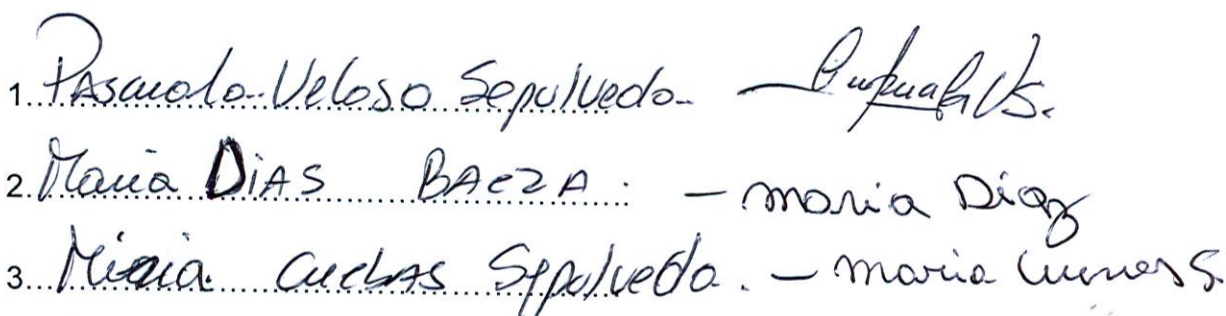 1. Pascuala Veloso Sepulveda
2. Maria DIAS BAEZA. - maria Diaz
3. Maria CueBAS Sepulveda. - maria S.